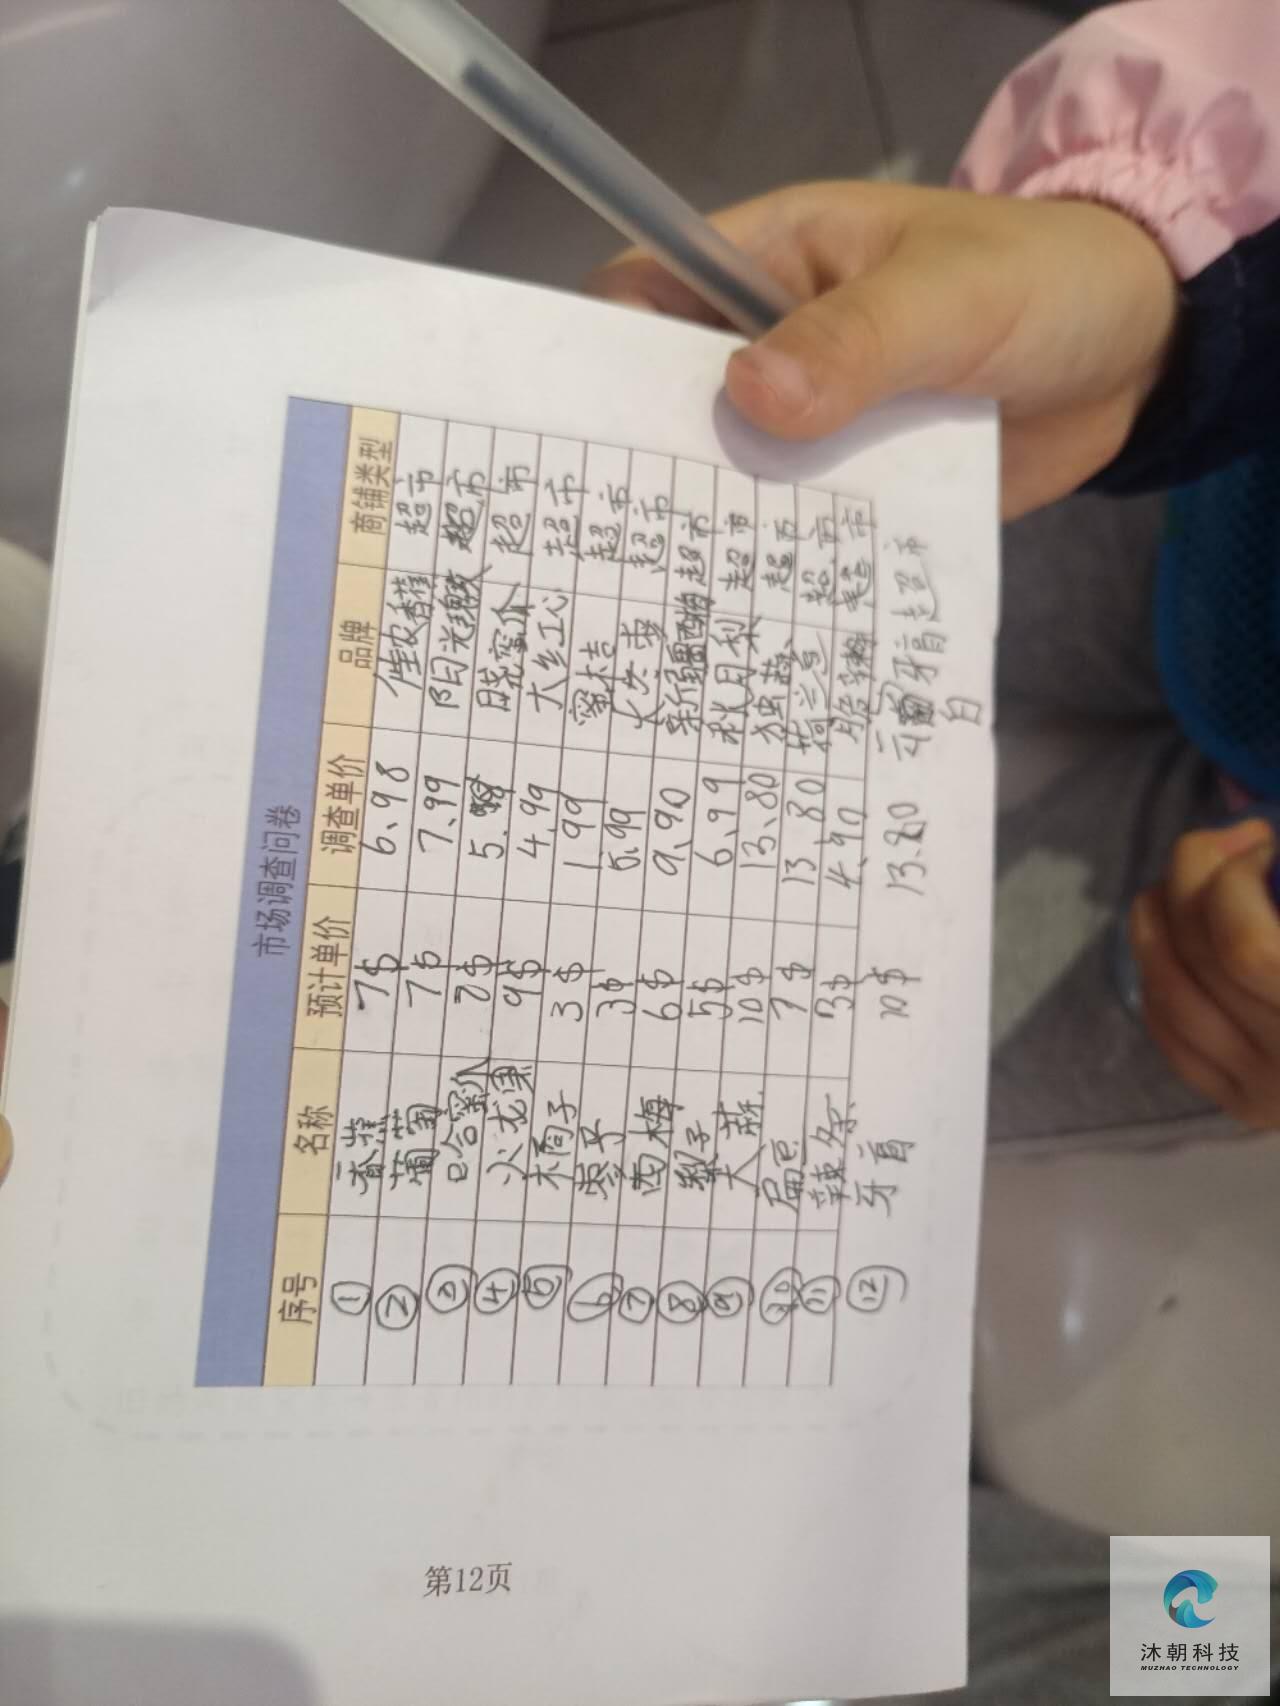 市场调查问卷
序号 名称 预计单价 调查单价 品牌 商铺类型
① 香蕉 7$ 6、98 佳农香蕉 超市
② 葡萄 7$ 7.99 阳光 超市
③ 哈蜜 7$ 5. 超市
④ 火龙果 9$ 4.99 大红心 超市
⑤ 橘子 3$ 1.99 蜜桔 超市
⑥ 3$ 5.99 超市
⑦ 西梅 6$ 9.90 新疆西梅 超市
⑧ 梨子 5$ 6、99 秋月梨 超市
⑨ 大蒜 10$ 13、80 独蒜 超市
⑩ 扁豆 7$ 13、80 荷兰豆 超市
⑪ 辣条 3$ 4、90 超市
⑫ 牙膏 10$ 13.80 云南白牙膏 超市
第12页
沐朝科技
MUZHAO TECHNOLOGY